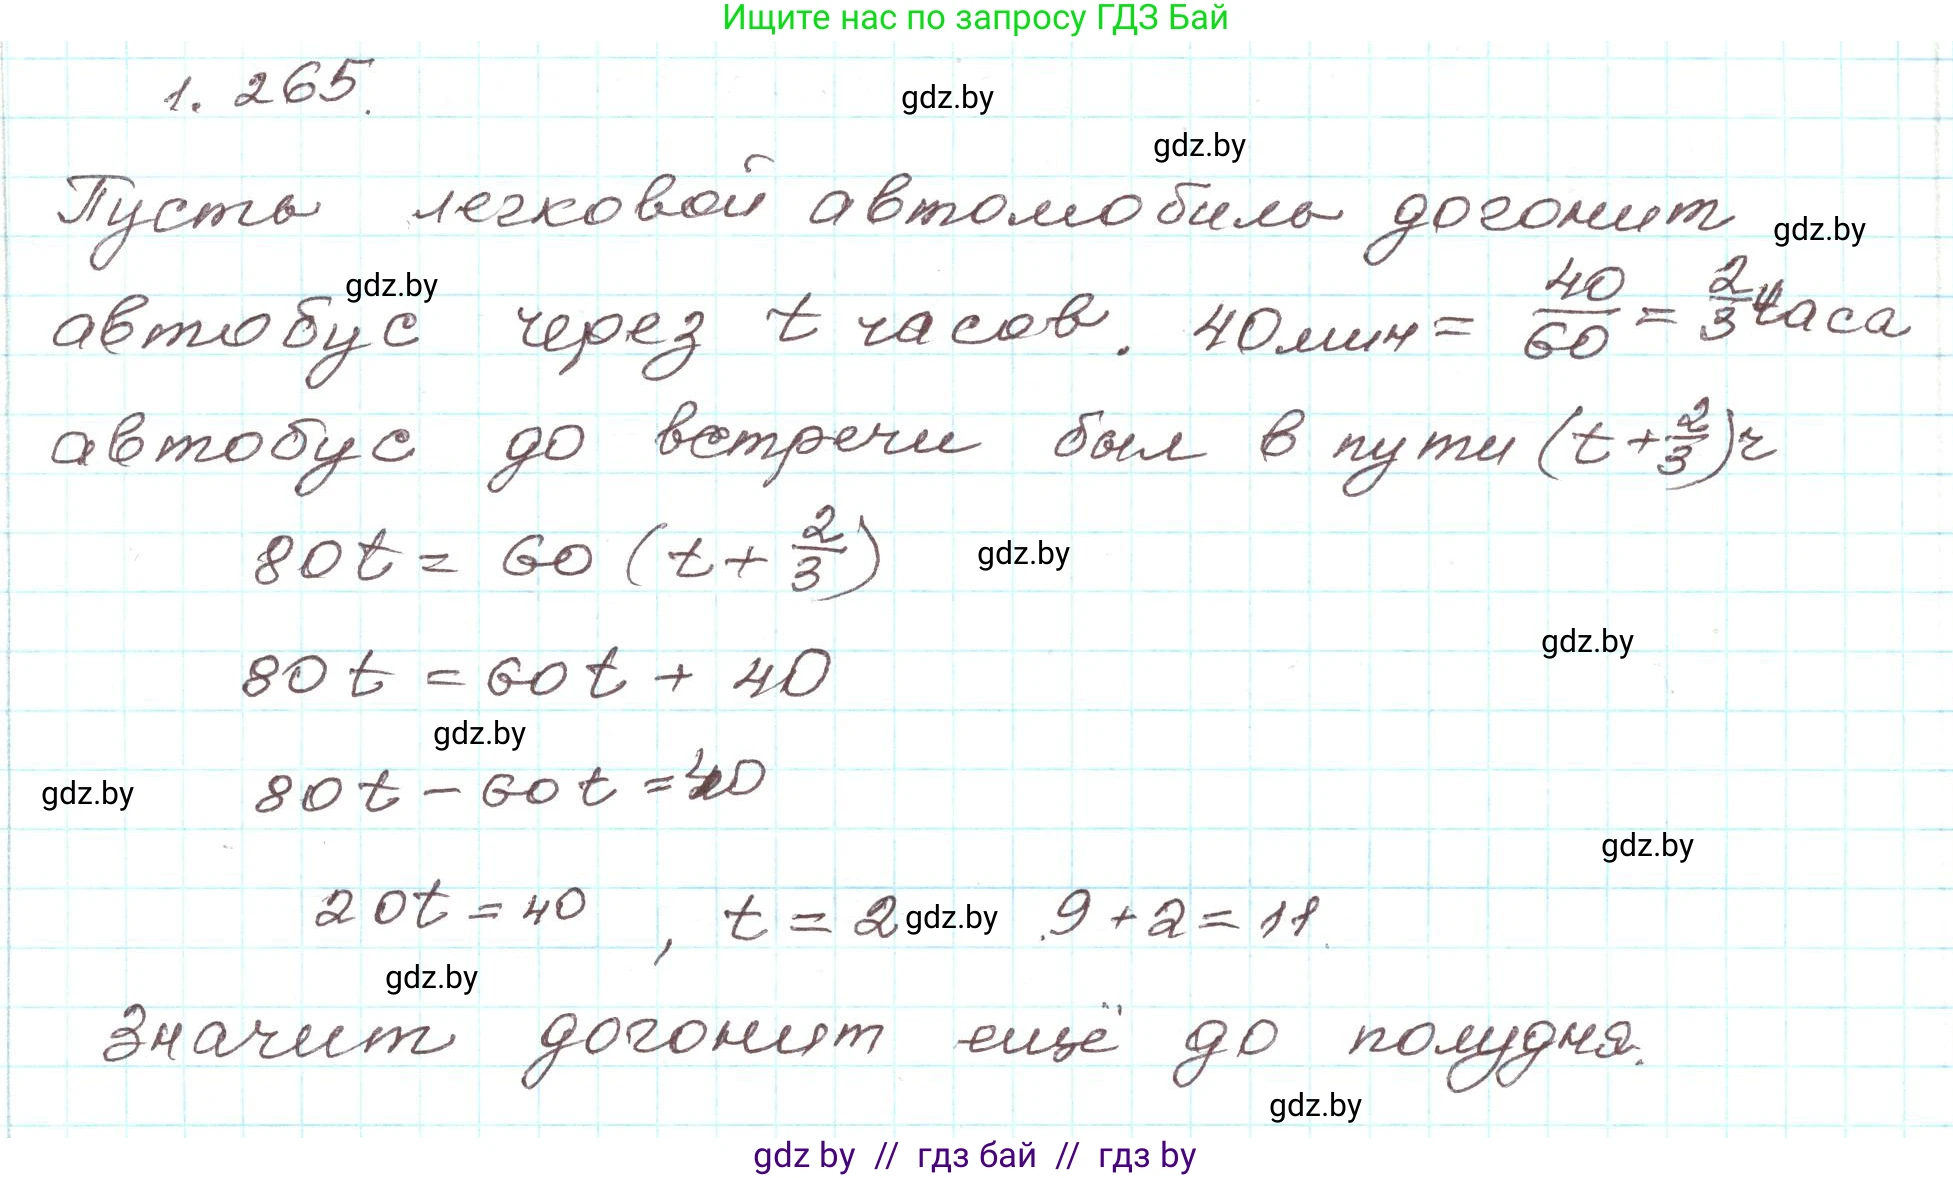 Ищите нас по запросу ГДЗ Бай
1. 265.
gdz.by
gdz.by
Пусть легковой автомобиль догонит
gdz.by
gdz.by
автобус через t часов. 40 мин = 40/60 = 2/3 часа
автобус до встречи был в пути (t + 2/3) ч
80t = 60 (t + 2/3)
gdz.by
gdz.by
80t = 60t + 40
gdz.by
80t - 60t = 40
gdz.by
gdz.by
20t = 40 , t = 2 gdz.by 9 + 2 = 11.
gdz.by
Значит догонит ещё до полудня.
gdz.by
gdz by // гдз бай // гдз by